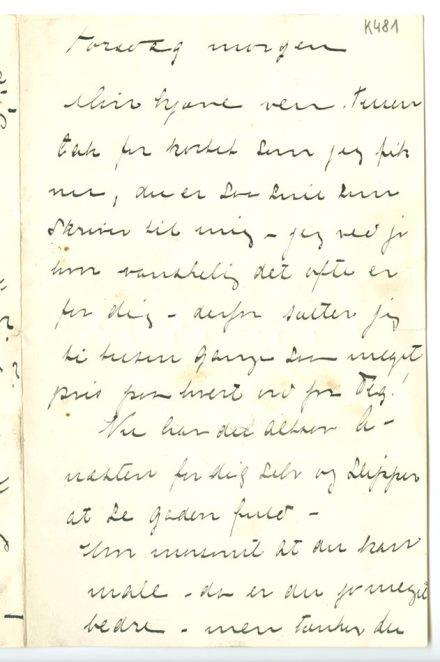 K481
Torsdag morgen
Min kjære ven. Tusen
tak for kortet som jeg fik
nu, du er saa snil som
skriver til mig – jeg ved jo
hvor vanskelig det ofte er
for dig – derfor sætter jeg
ti tusen gange saa meget
pris paa hvert ord fra Dig!
Nu har du altsaa
for dig selv og slipper
at se gaden fuld –
Hvor morsomt at du kan
male – da er du jo meget
bedre – men tænker du